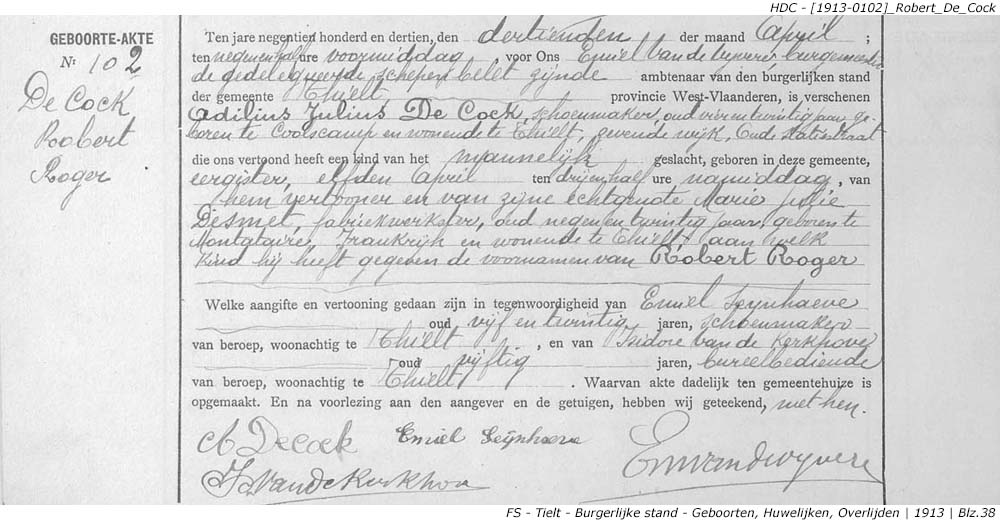 HDC - [1913-0102]_Robert_De_Cock
GEBOORTE-AKTE
Nr 102
De Cock
Robert
Roger
Ten jare negentien honderd en dertien, den dertienden der maand April ;
ten negen en half ure voormiddag , voor Ons Emiel Vandewyvere burgemeester
de gedelegueerde schepen belet zijnde ambtenaar van den burgerlijken stand
der gemeente Thielt provincie West-Vlaanderen, is verschenen
Adilius Julius De Cock, schoenmaker, oud vier en twintig jaar ge-
boren te Coolscamp en wonende te Thielt, zevende wijk, Oude statiestraat
die ons vertoond heeft een kind van het mannelijk geslacht, geboren in deze gemeente,
eergister, elfden April ten drij en half ure namiddag , van
hem vertooner en van zijne echtgenote Marie Julie
Desmet, fabriekwerkster, oud negen en twintig jaar, geboren te
Montataire, Frankrijk en wonende te Thielt, aan welk
kind hij heeft gegeven de voornamen van Robert Roger
Welke aangifte en vertooning gedaan zijn in tegenwoordigheid van Emiel Seynhaeve
oud vijf en twintig jaren, schoenmaker
van beroep, woonachtig te Thielt , en van Isidore Van de Kerkhove
oud vijftig jaren, bureelbediende
van beroep, woonachtig te Thielt . Waarvan akte dadelijk ten gemeentehuize is
opgemaakt. En na voorlezing aan den aangever en de getuigen, hebben wij geteekend, met hen.
A Decock Emiel Seynhaeve
Em Vandewyvere
Is. Vande Kerkhove
FS - Tielt - Burgerlijke stand - Geboorten, Huwelijken, Overlijden | 1913 | Blz.38